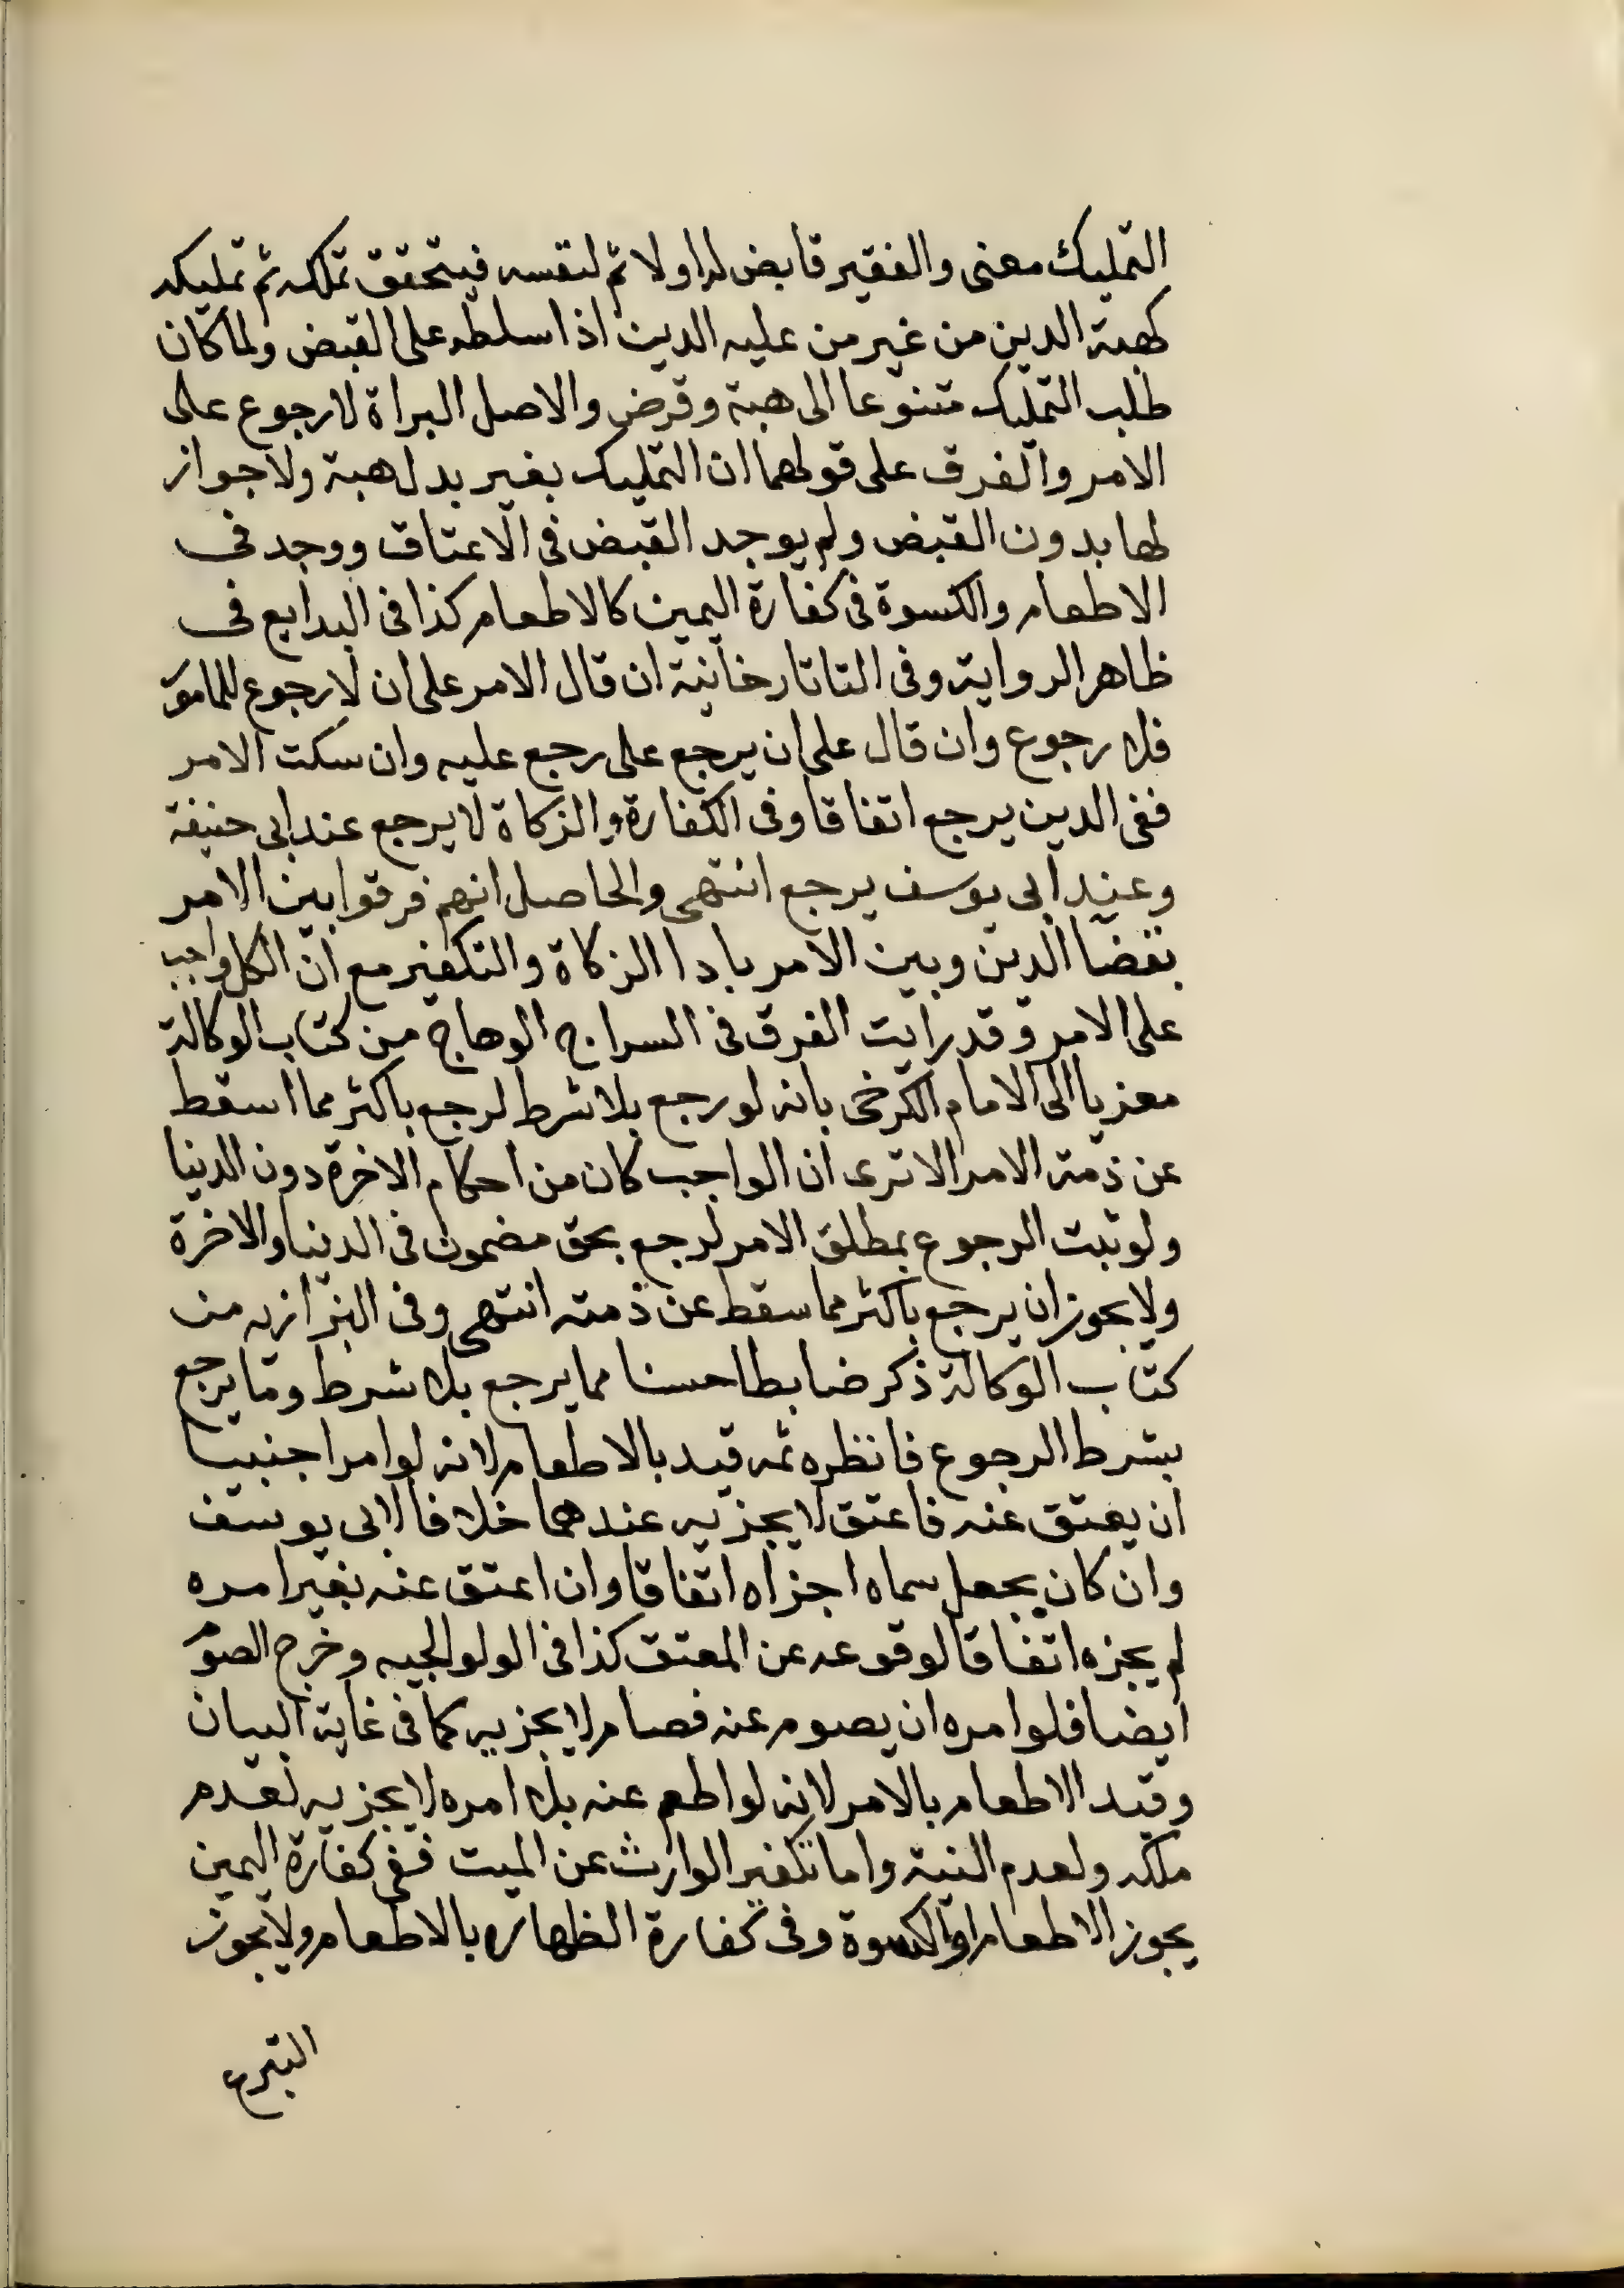 التمليك معنى والفقير قابض له اولا ثم لنفسه فيتحقق تملكه ثم تمليكه
كهبة الدين من غير من عليه الدين اذا سلطه على القبض ولما كان
طلب التمليك متنوعا الى هبة وقرض والاصل البراة لا رجوع على
الامر والفرق على قولهما ان التمليك بغير بدل هبة ولا جواز
لها بدون القبض ولم يوجد القبض فى الاعتاق ووجد فى
الاطعام والكسوة فى كفارة اليمين كالاطعام كذا فى البدايع فى
ظاهر الرواية وفى التاتارخانية ان قال الامر على ان لا رجوع للمامور
فلا رجوع وان قال على ان يرجع على رجع عليه وان سكت الامر
ففى الدين يرجع اتفاقا وفى الكفارة والزكاة لا يرجع عند ابى حنيفة
وعند ابى يوسف يرجع انتهى والحاصل انهم فرقوا بين الامر
بقضا الدين وبين الامر بادا الزكاة والتكفير مع ان الكل واجب
على الامر وقد رايت الفرق فى السراج الوهاج من كتاب الوكالة
معزيا الى الامام الكرخى بانه لو رجع بلا شرط لرجع باكثر مما اسقط
عن ذمته الامر الا ترى ان الواجب كان من احكام الاخرة دون الدنيا
ولو ثبت الرجوع بمطلق الامر لرجع بحق مضمون فى الدنيا والاخرة
ولا يجوز ان يرجع باكثر مما سقط عن ذمته انتهى وفى البزازيه من
كتاب الوكالة ذكر ضابطا حسنا مما يرجع بلا شرط وما يرجع
بشرط الرجوع فانظره ثمه قيد بالاطعام لانه لو امر اجنبيا
ان يعتق عنه فاعتق لا يجزيه عندهما خلافا لابى يوسف
وان كان بجعل سماه اجزاه اتفاقا وان اعتق عنه بغير امره
لم يجزه اتفاقا لوقوعه عن المعتق كذا فى الولوالجيه وخرج الصوم
ايضا فلو امره ان يصوم عنه فصام لا يجزيه كما فى غاية البيان
وقيد الاطعام بالامر لانه لو اطعم عنه بلا امره لا يجزيه لعدم
ملكه ولعدم النية واما تكفير الوارث عن الميت ففى كفارة اليمين
يجوز الاطعام او الكسوة وفى كفارة الظهار بالاطعام ولا يجوز
التبرع